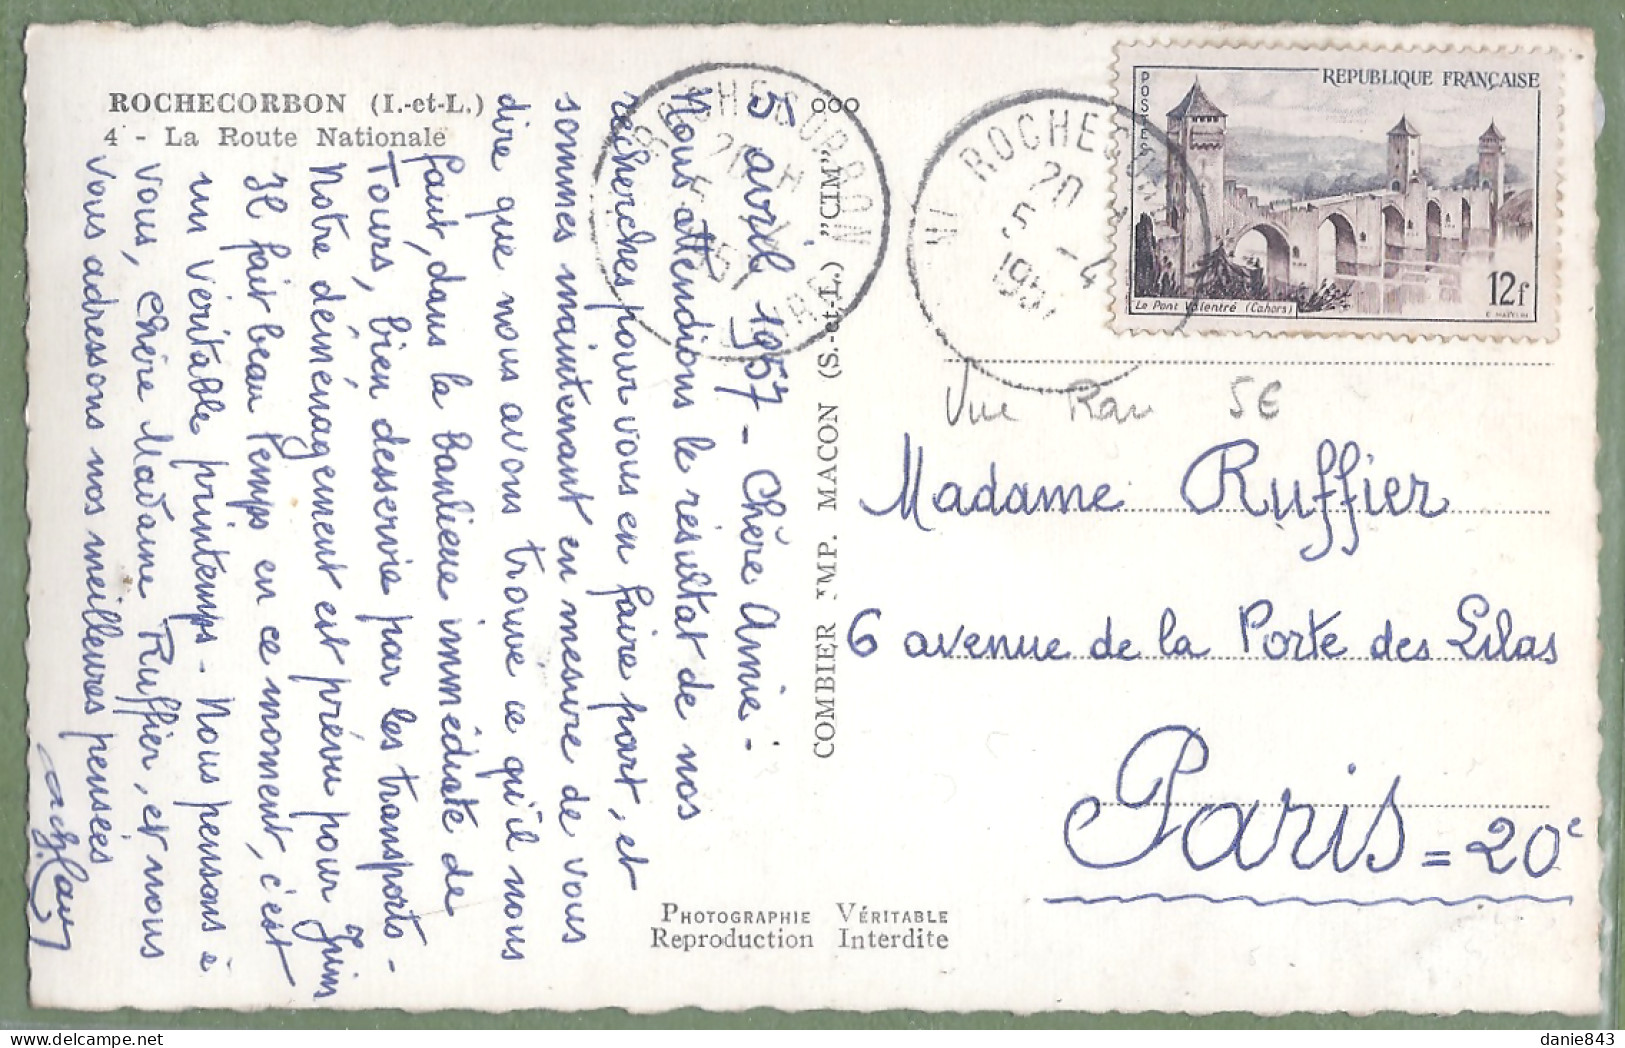 ROCHECORBON (I.-et-L.)
4 - La Route Nationale
5 avril 1957 - Chère Amie -
Nous attendions le résultat de nos
recherches pour vous en faire part, et
sommes maintenant en mesure de vous
dire que nous avons trouvé ce qu'il nous
faut, dans la banlieue immédiate de
Tours, bien desservie par les transports -
Notre déménagement est prévu pour Juin
Il fait beau temps en ce moment, c'est
un véritable printemps - Nous pensons à
vous, Chère Madame Ruffier, et nous
vous adressons nos meilleures pensées
COMBIER IMP. MACON (S.-et-L.) "CIM"
PHOTOGRAPHIE VÉRITABLE
Reproduction Interdite
ROCHECORBON
20 H
5
57
ROCHECOR
20
5 -4
195
POSTES
REPUBLIQUE FRANÇAISE
12f
Le Pont Valentré (Cahors)
Vue Rare 5€
Madame Ruffier
6 avenue de la Porte des Lilas
Paris = 20e
danie843